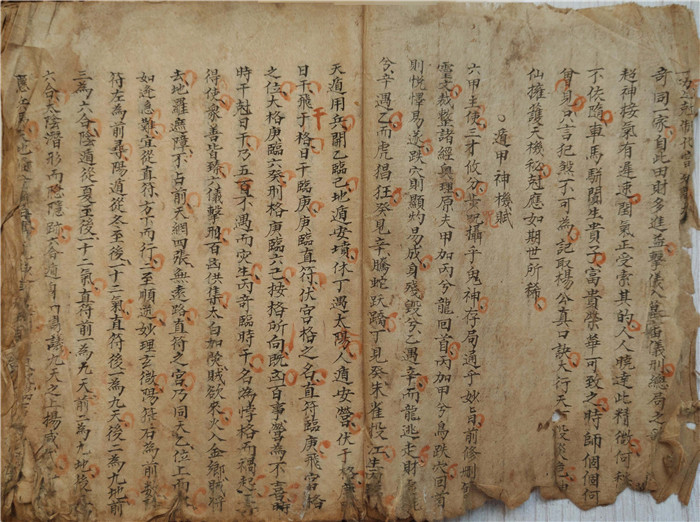 奇同一家自此田財多進益擊儀入墓宙儀刑總局之
超神接氣有遲速閏氣正受索其的人人曉達此精微何
不依隨車馬駢闐生貴子富貴榮華可致之時師個個何
會身只言犯煞不可為記取楊公真口訣大行天
仙擁護天機秘冠應如期世所稀
遁甲神機賦
六甲主使三才攸分步咒攝乎鬼神存局通乎妙旨前修刪
靈文裁整諸經奧理原夫甲加丙兮龍回首丙加甲兮鳥跌穴回首
則悅懌易遂跌穴則顯灼易成身殘毀兮乙遇辛而龍逃走財
兮辛遇乙而虎猖狂癸見辛騰蛇跃蹻丁見癸朱雀投江生
天遁用兵開乙臨己地遁安墳休丁遇太陽人遁安營伏干格
日干飛干格日干臨庚庚臨直符伏宮格之名直符臨庚飛宮格
之位大格庚臨六癸刑格庚臨六己按格所向既凶百事營為不喜
時干尅日干乃五不遇而灾生丙奇臨時干名為悖格而禍起三
得使衆善皆臻六儀擊刑百凶供集太白加熒賊欲來火入金鄉賊將
去地羅遮障不占前天網四張無走路直符之宮乃同天乙位上而
如逢急難宜從直符方下而行二至順逆妙理玄微陽符右為前
符左為前尋陽遁從冬至後十二氣直符後一為九天後二為九地前
三為六合陰遁從夏至後十二氣直符前一為九天前二為九地後
六合太陰潛形而隱隱跡六合遁身
九天之上揚